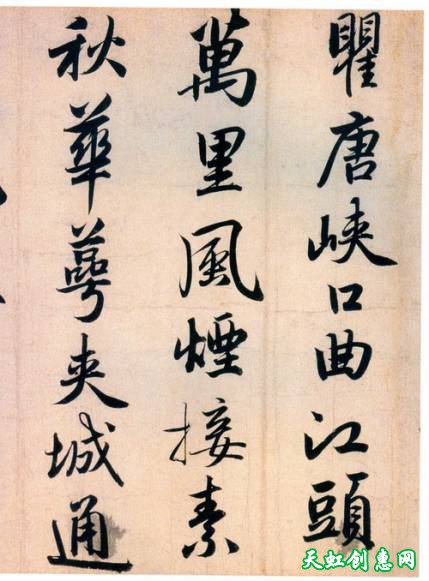 瞿唐峽口曲江頭
萬里風煙接素
秋華萼夾城通
天虹创惠网